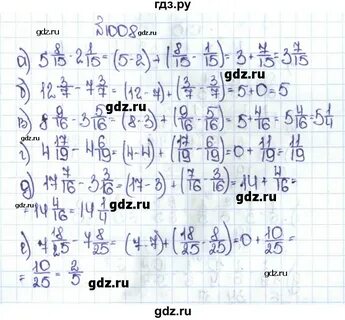 гдз.ру
№1008
а) 5 8/15 - 2 1/15 = (5-2) + (8/15 - 1/15) = 3 + 7/15 = 3 7/15
б) 12 3/7 - 7 3/7 = (12-7) + (3/7 - 3/7) = 5+0 = 5
в) 8 9/16 - 3 5/16 = (8-3) + (9/16 - 5/16) = 5 4/16 = 5 4/16 = 5 1/4
г) 4 17/19 - 4 6/19 = (4-4) + (17/19 - 6/19) = 0 + 11/19 = 11/19
д) 17 7/16 - 3 3/16 = (17-3) + (7/16 - 3/16) = 14 + 4/16 =
= 14 4/16 = 14 1/4
е) 7 18/25 - 7 8/25 = (7-7) + (18/25 - 8/25) = 0 + 10/25 =
= 10/25 = 2/5